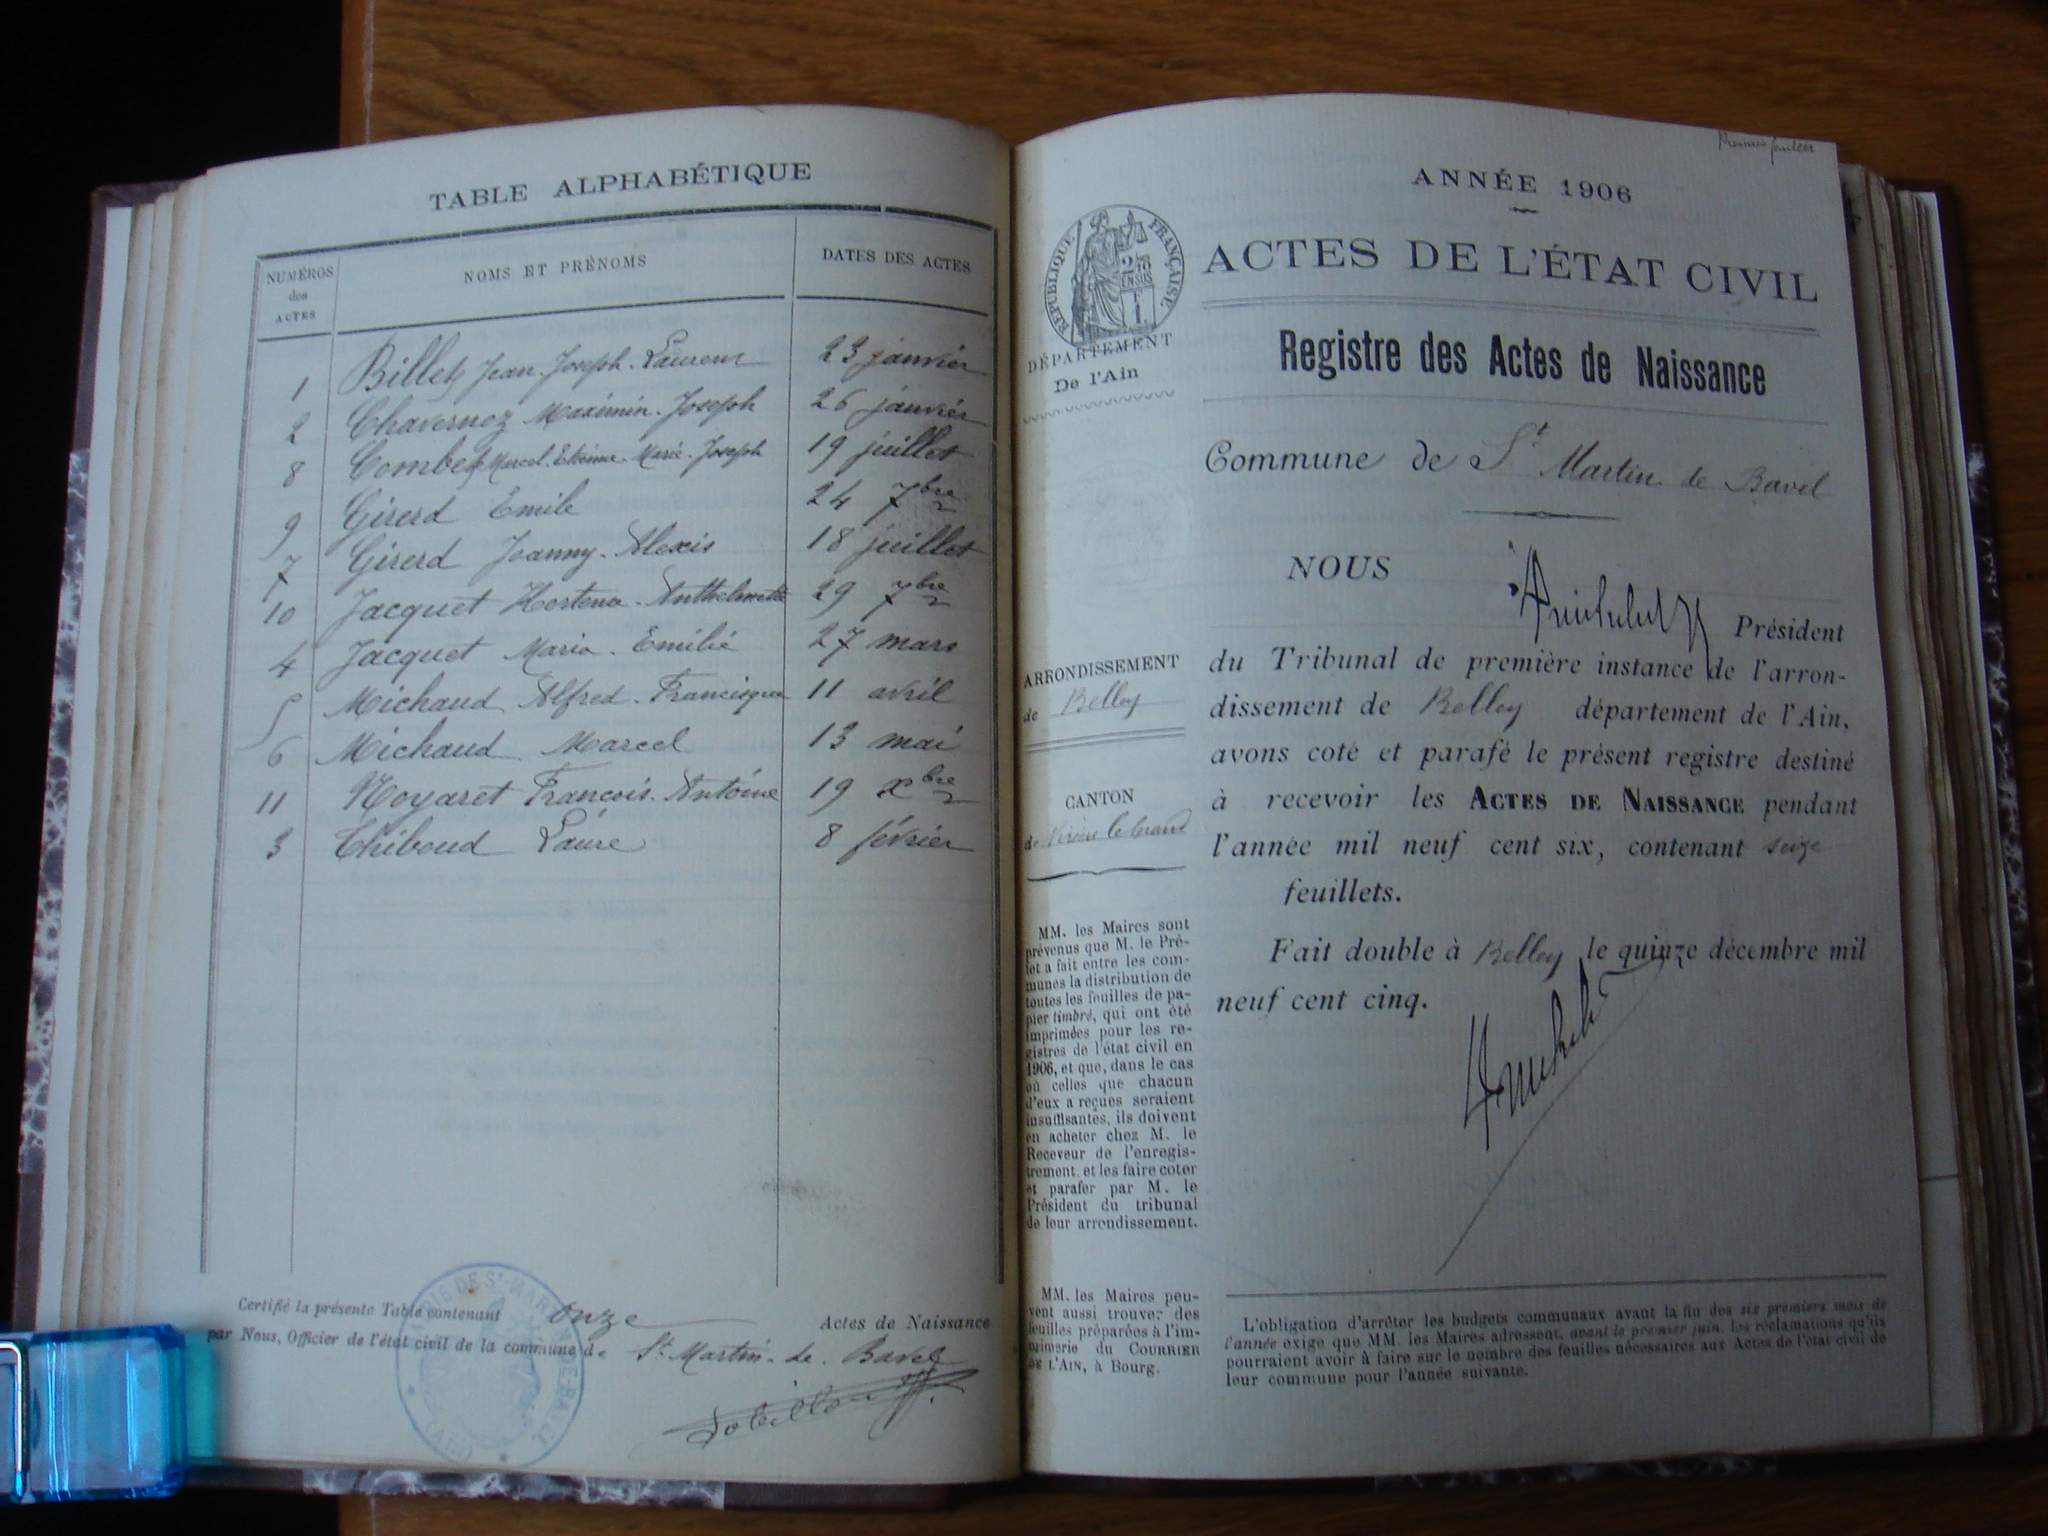 TABLE ALPHABÉTIQUE
NUMÉROS
des
ACTES
NOMS ET PRÉNOMS
DATES DES ACTES
1 Billet Jean-Joseph-Laurent 23 janvier
2 Chavernoz Maximin-Joseph 26 janvier
8 Combet Marcel-Etienne-Marie-Joseph 19 juillet
9 Girerd Emile 24 7bre
7 Girerd Joanny-Alexis 18 juillet
10 Jacquet Anthelmette 29 7bre
4 Jacquet Maria-Emilie 27 mars
5 Michaud Alfred-Francisque 11 avril
6 Michaud Marcel 13 mai
11 Noyaret François-Antoine 19 xbre
3 Thiboud Laure 8 février
Certifié la présente Table contenant onze Actes de Naissance
par Nous, Officier de l'état civil de la commune de St Martin-de-Bavel
ANNÉE 1906
RÉPUBLIQUE FRANÇAISE
ACTES DE L'ÉTAT CIVIL
DÉPARTEMENT
De l'Ain
Registre des Actes de Naissance
Commune de St Martin de Bavel
NOUS
Président
du Tribunal de première instance de l'arron-
dissement de Belley département de l'Ain,
avons coté et parafé le présent registre destiné
à recevoir les ACTES DE NAISSANCE pendant
l'année mil neuf cent six, contenant seize
feuillets.
Fait double à Belley le quinze décembre mil
neuf cent cinq.
ARRONDISSEMENT
de Belley
CANTON
de Virieu le Grand
MM. les Maires sont
prévenus que M. le Pré-
fet a fait entre les com-
munes la distribution de
toutes les feuilles de pa-
pier timbré, qui ont été
imprimées pour les re-
gistres de l'état civil en
1906, et que, dans le cas
où celles que chacun
d'eux a reçues seraient
insuffisantes, ils doivent
en acheter chez M. le
Receveur de l'enregis-
trement, et les faire coter
et parafer par M. le
Président du tribunal
de leur arrondissement.
MM. les Maires peu-
vent aussi trouver des
feuilles préparées à l'im-
primerie du COURRIER
DE L'AIN, à Bourg.
L'obligation d'arrêter les budgets communaux avant la fin des six premiers mois de
l'année exige que MM. les Maires adressent, avant le premier juin, les réclamations qu'ils
pourraient avoir à faire sur le nombre des feuilles nécessaires aux Actes de l'état civil de
leur commune pour l'année suivante.